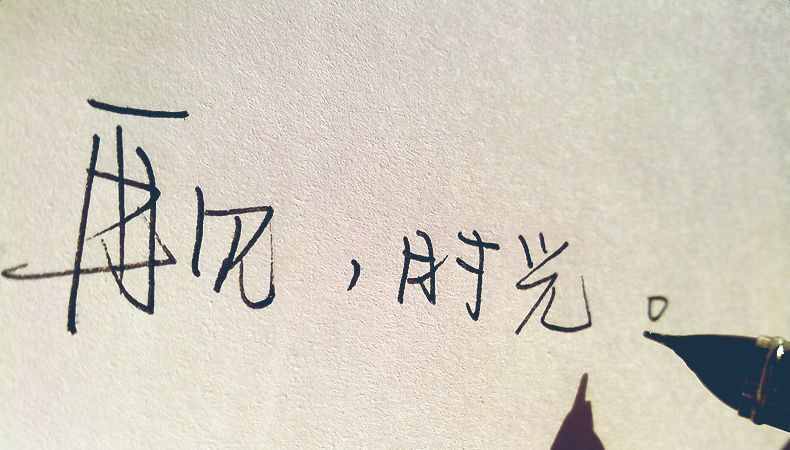 再见，时光。